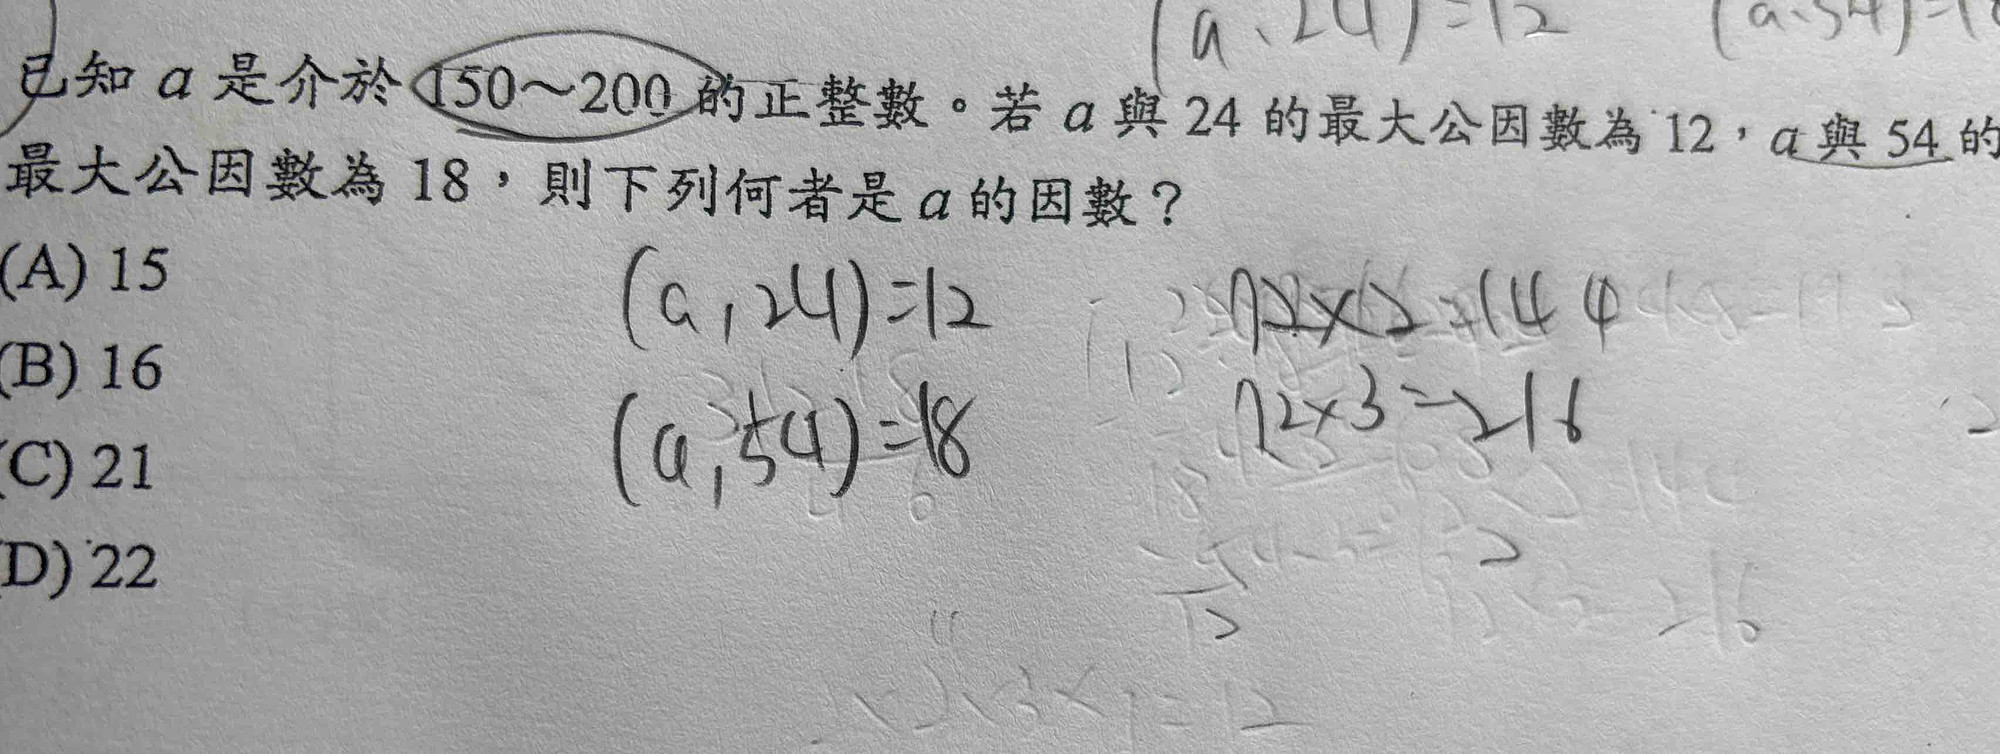 (a、24)=12 (a、54)=18
已知 a 是介於 150～200 的正整數。若 a 與 24 的最大公因數為 12，a 與 54 的
最大公因數為 18，則下列何者是 a 的因數？
(A) 15
(a,24)=12 72×2=144
(B) 16
(a,54)=18 72×3=216
(C) 21
(D) 22